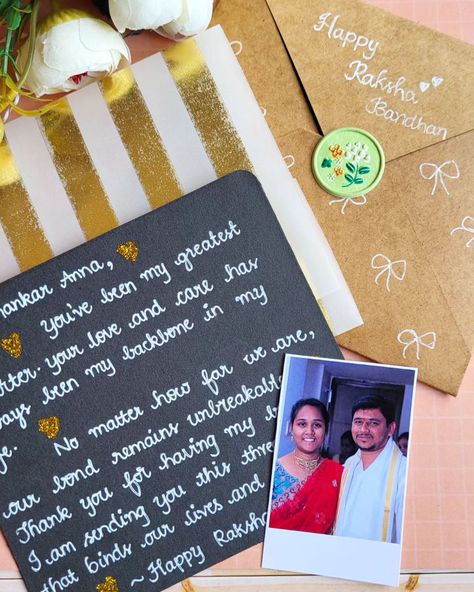 Happy
Raksha
Bandhan
Anna,
You've been my greatest
your love and care has
been my backbone in my
No matter how far we are,
our bond remains unbreakable
Thank you for having my
I am sending you this
that binds our lives and
~ Happy Raksha